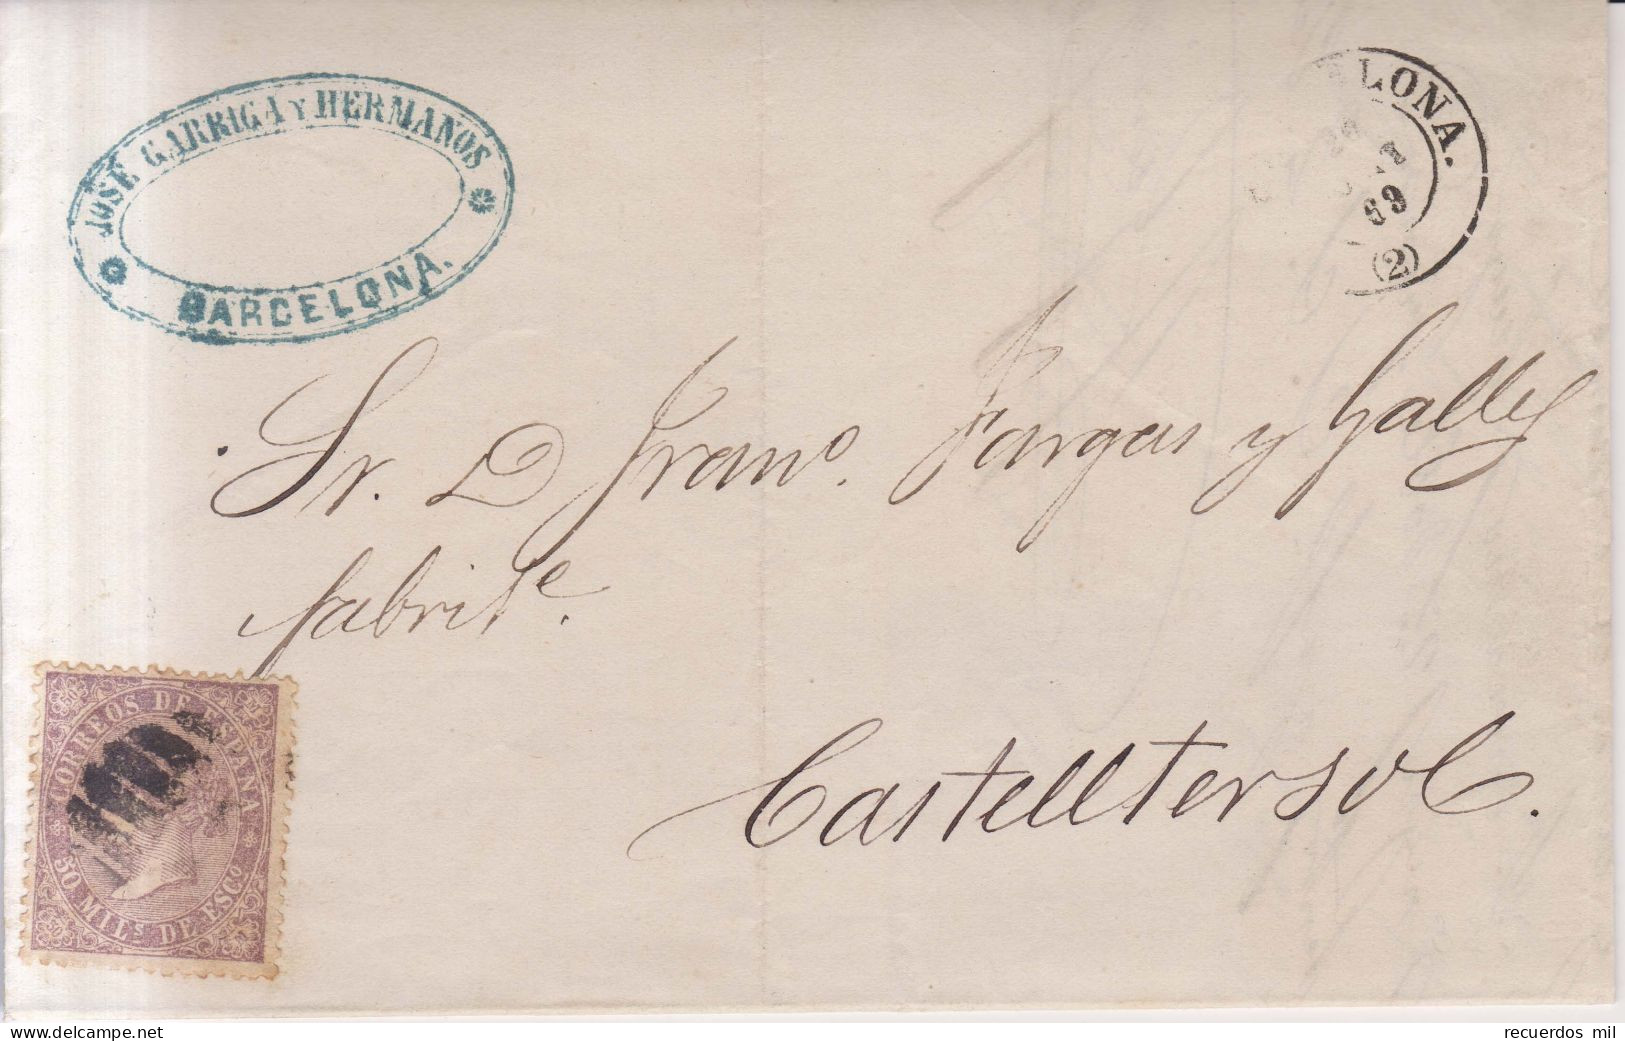 JOSÉ GARRIGA Y HERMANOS
BARCELONA.
LONA.
69
(2)
Sr. D Franco. Fargas y Gally
fabrite.
Castelltersol.
CORREOS DE ESPAÑA
50 MILS DE ESCO
delcampe.net
recuerdos mil